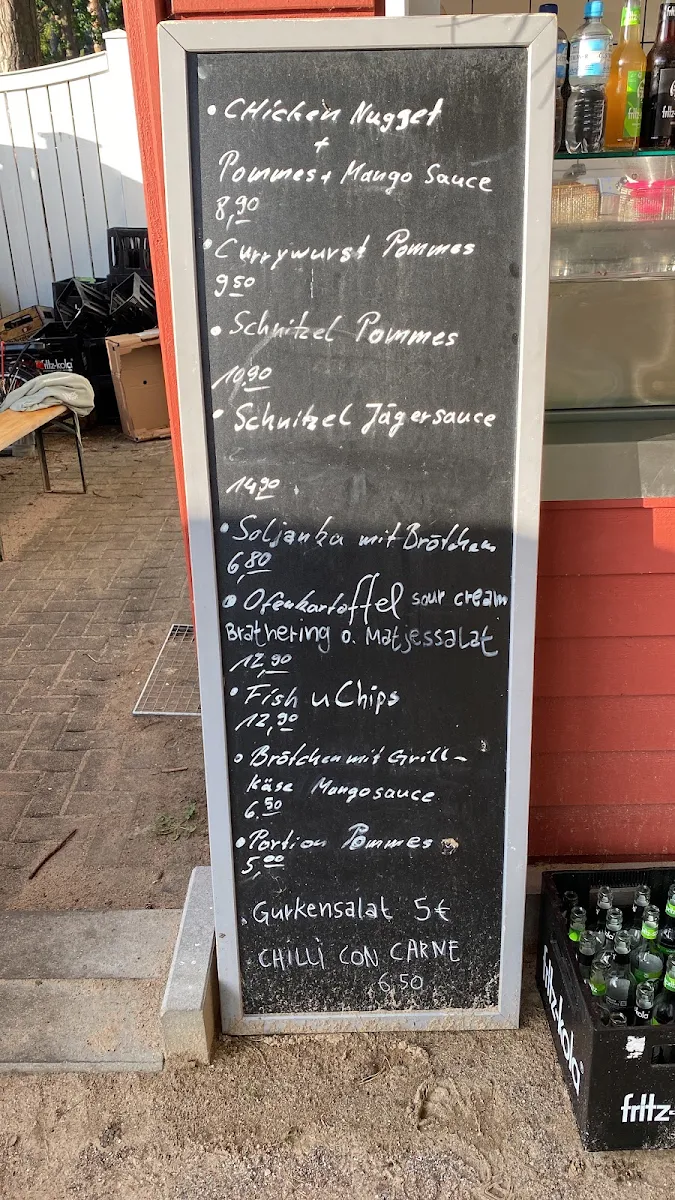 • CHicken Nugget
+
Pommes + Mango Sauce
8,90
• Currywurst Pommes
9 50
• Schnitzel Pommes
10,90
• Schnitzel Jägersauce
14 90
• Soljanka mit Brötchen
6,80
• Ofenkartoffel sour cream
Brathering o. Matjessalat
12,90
• Fish u Chips
12,90
• Brötchen mit Grill-
käse Mangosauce
6,50
• Portion Pommes
5,00
• Gurkensalat 5€
• CHILLI CON CARNE
6,50
fritz-kola
fritz-kola
fritz-